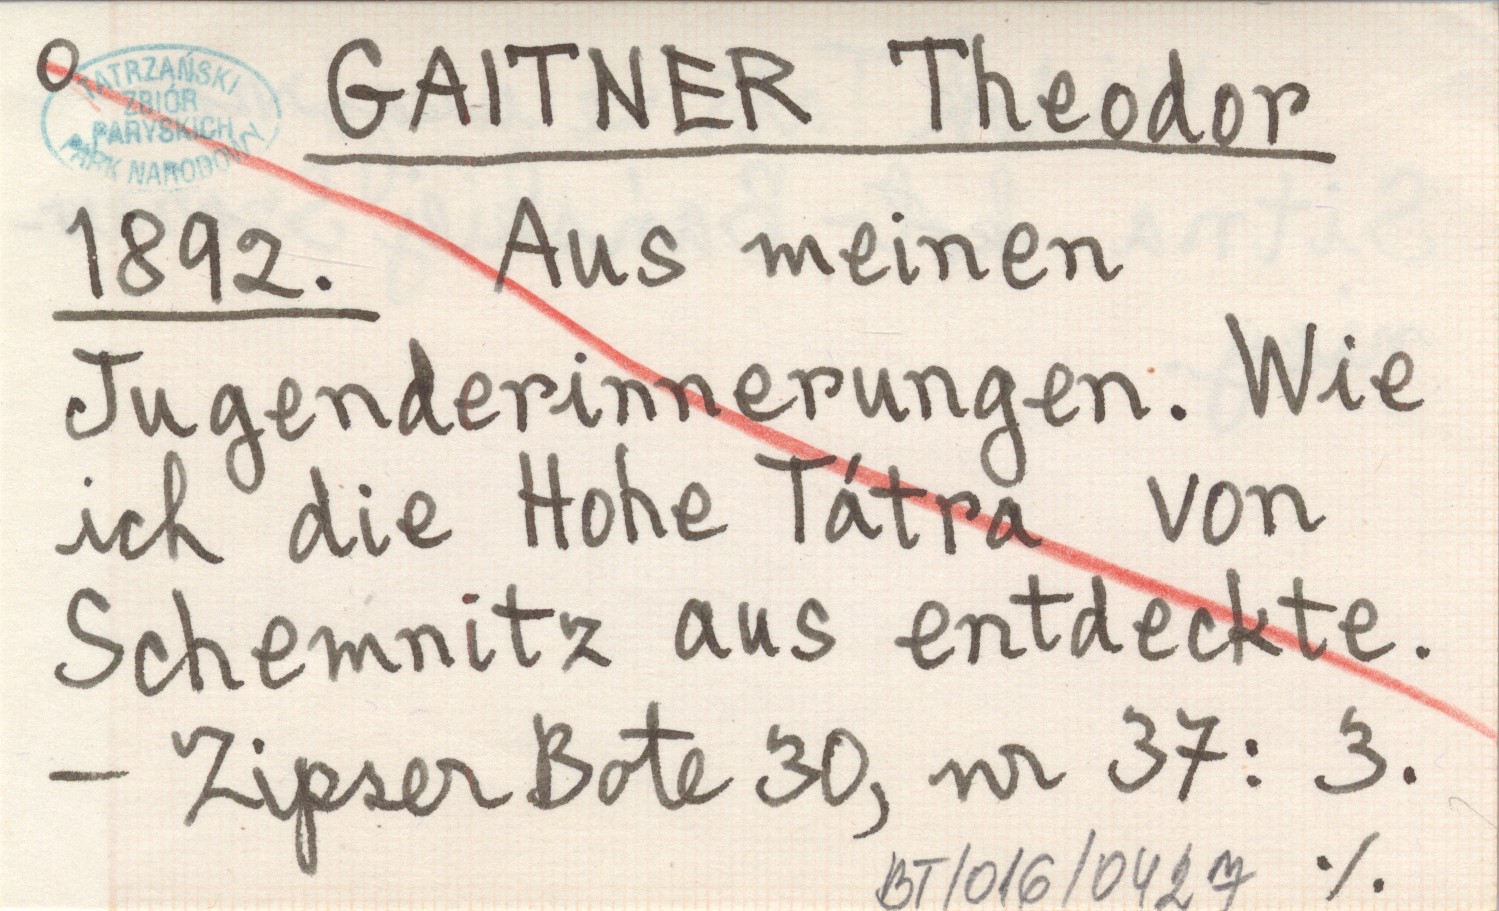 O
TATRZAŃSKI
ZBIÓR
PARYSKICH
PARK NARODOWY
GAITNER Theodor
1892. Aus meinen
Jugenderinnerungen. Wie
ich die Hohe Tátra von
Schemnitz aus entdeckte.
— Zipser Bote 30, nr 37: 3.
BT/016/0427 ·/.